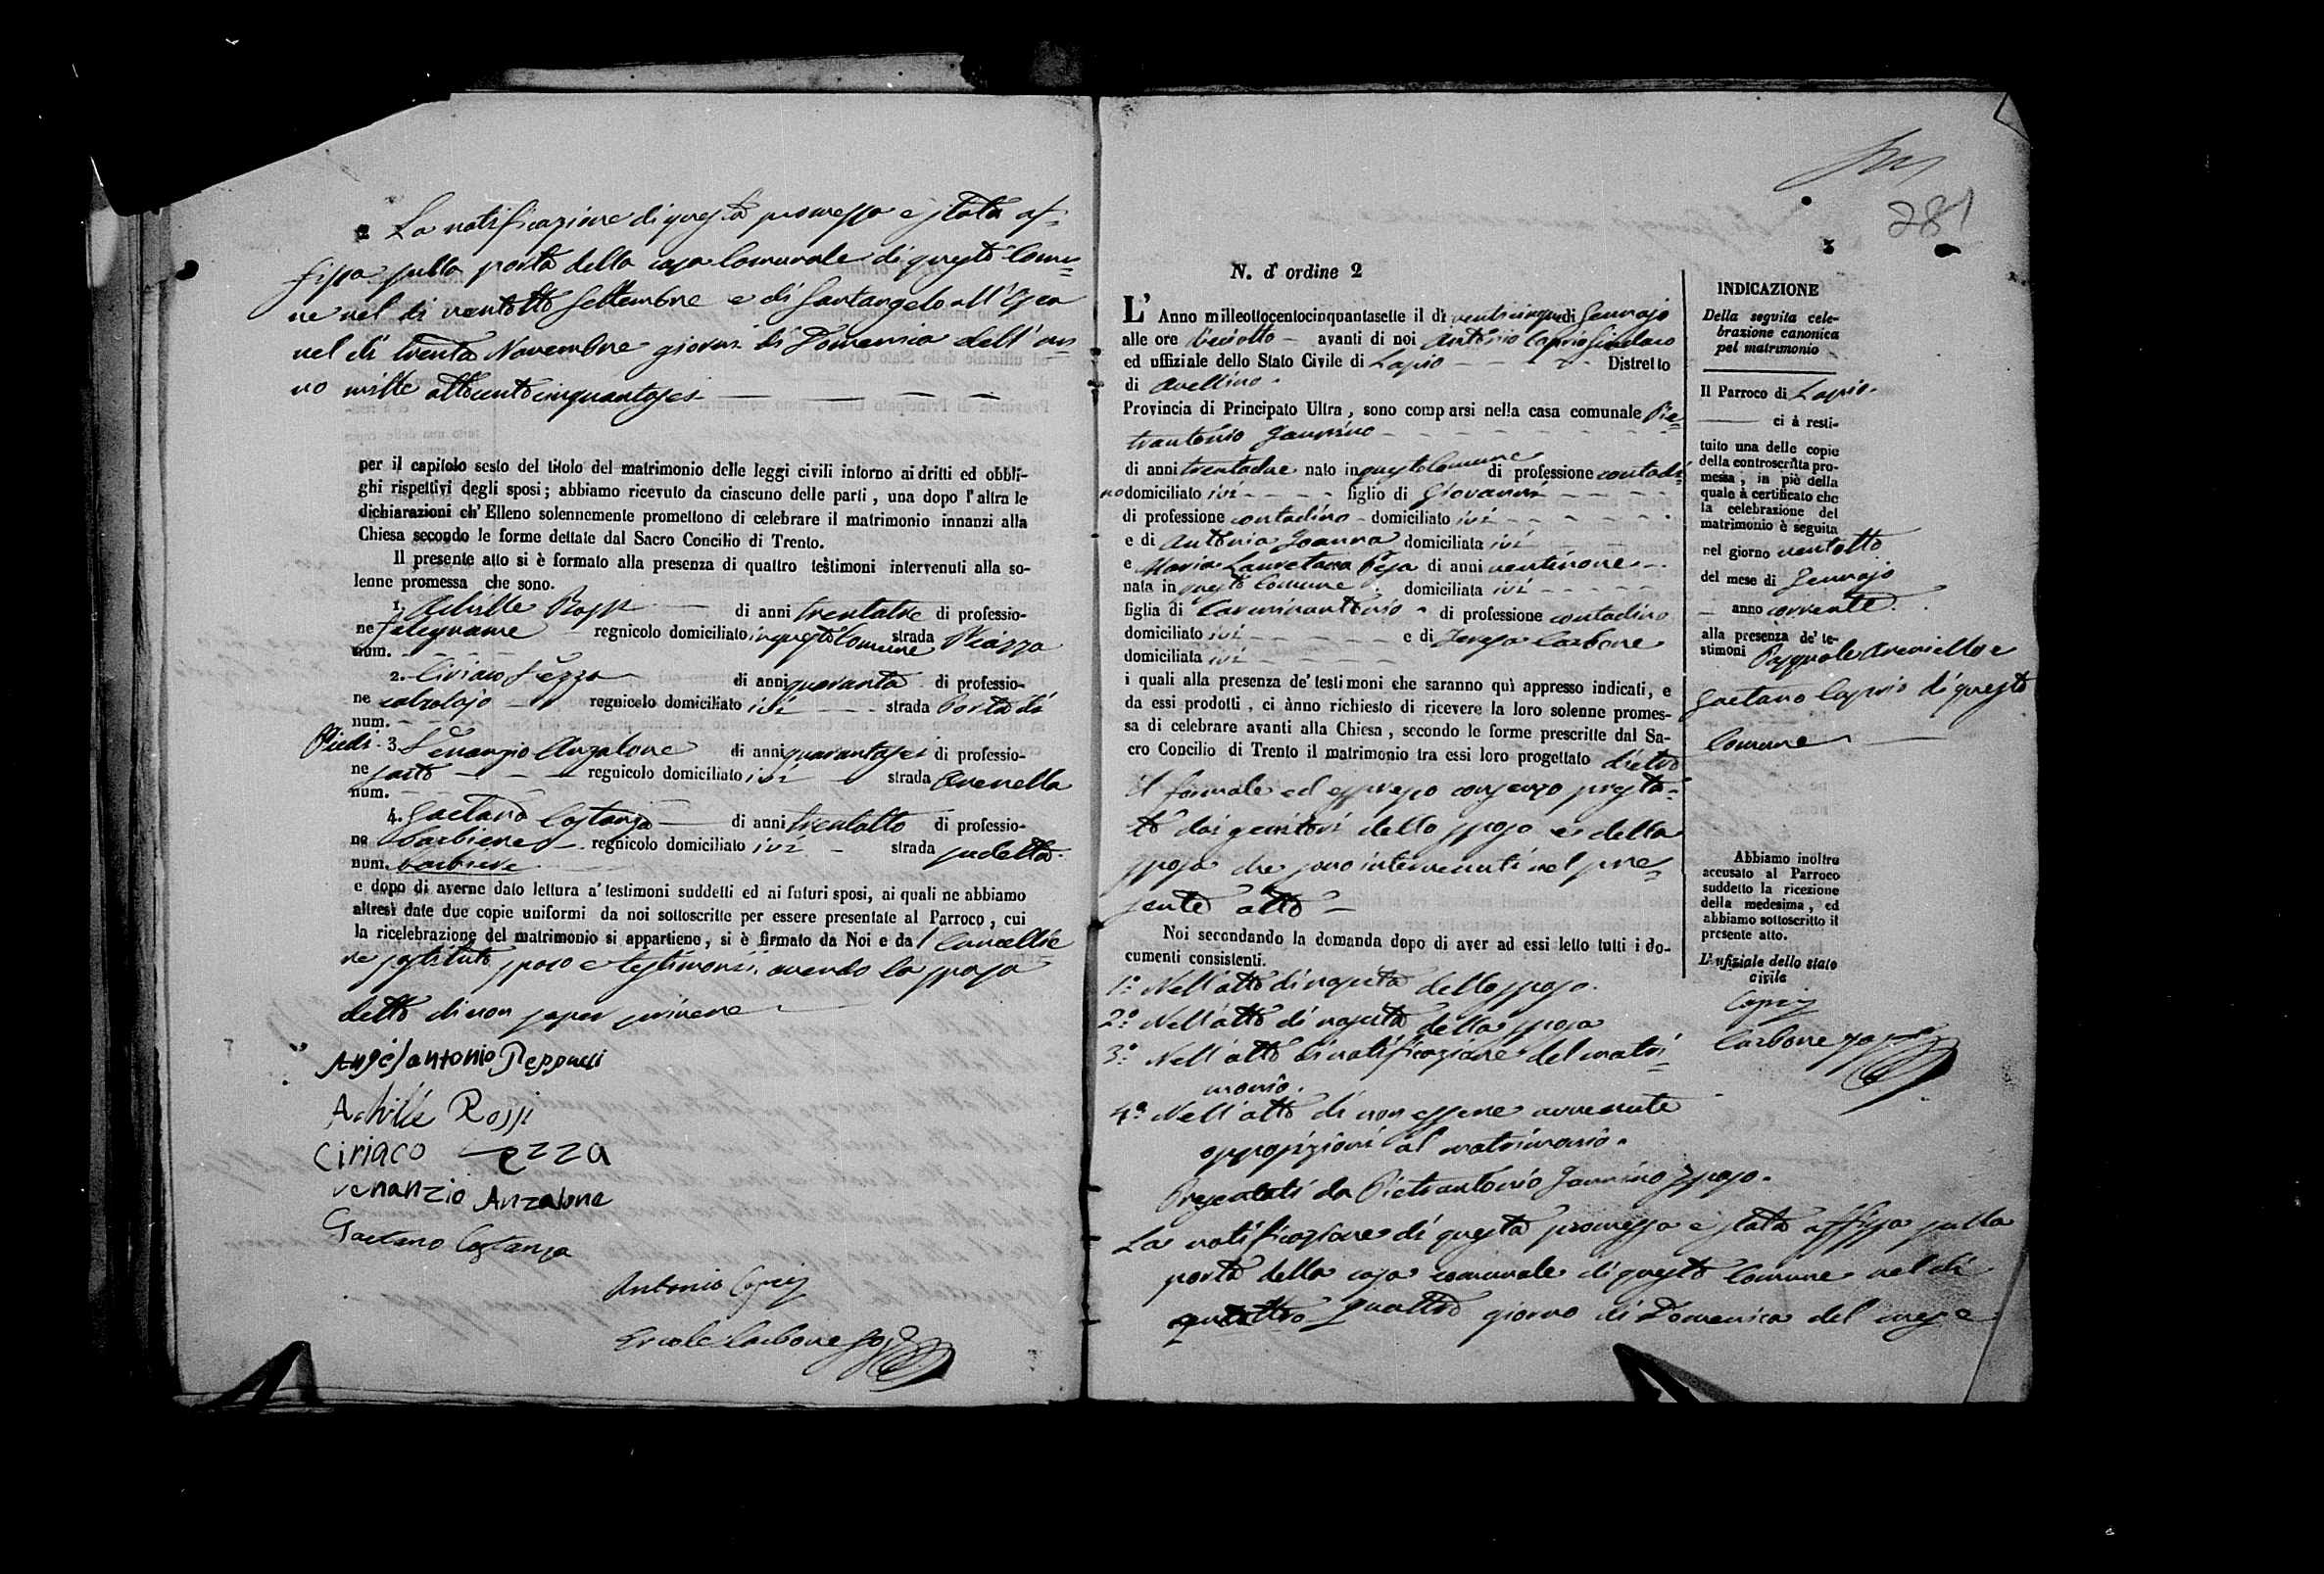 2 La notificazione di questa promessa è stata af=
fissa sulla porta della casa Comunale di questo Comu=
ne nel dì ventotto Settembre e di Santangelo all'Esca
nel dì trenta Novembre giorni di Domenica dell'an=
no mille ottocentocinquantasei
per il capitolo sesto del titolo del matrimonio delle leggi civili intorno ai dritti ed obbli-
ghi rispettivi degli sposi; abbiamo ricevuto da ciascuno delle parti, una dopo l'altra le
dichiarazioni ch'Elleno solennemente promettono di celebrare il matrimonio innanzi alla
Chiesa secondo le forme dettate dal Sacro Concilio di Trento.
Il presente atto si è formato alla presenza di quattro testimoni intervenuti alla so-
lenne promessa che sono.
1. Achille Rossi di anni trentatre di professio-
ne falegname regnicolo domiciliato in questo Comune strada Piazza
num.
2. Ciriaco Pezza di anni quaranta di professio-
ne calzolajo regnicolo domiciliato ivi strada Porta di
num.
Piedi 3. Venanzio Anzalone di anni quarantasei di professio-
ne sarto regnicolo domiciliato ivi strada Avenella
num.
4. Gaetano Costanza di anni trentotto di professio-
ne barbiere regnicolo domiciliato ivi strada sudetta.
num. barbiere
e dopo di averne dato lettura a' testimoni suddetti ed ai futuri sposi, ai quali ne abbiamo
altresì date due copie uniformi da noi sottoscritte per essere presentate al Parroco, cui
la ricelebrazione del matrimonio si appartiene, si è firmato da Noi e da l Cancellie
re sostituto, sposo e testimonii, avendo la sposa
detto di non saper scrivere
Angelantonio
Achille Rossi
Ciriaco Pezza
venanzio Anzalone
Gaetano Costanza
Antonio Caprio
Ercole Carbone
281
3
N. d'ordine 2
L' Anno milleottocentocinquantasette il dì venticinque di Gennajo
alle ore dieciotto avanti di noi Antonio Caprio Sindaco
ed uffiziale dello Stato Civile di Lapio Distretto
di Avellino.
Provincia di Principato Ultra, sono comparsi nella casa comunale Pie=
trantonio Jannino
di anni trentadue nato in questo Comune di professione contadi
no domiciliato ivi figlio di Giovanni
di professione contadino domiciliato ivi
e di Antonia Joanna domiciliata ivi
e Maria Lauretana Pesa di anni ventinove
nata in questo Comune domiciliata ivi
figlia di Carminantonio di professione contadino
domiciliato ivi e di Teresa Carbone
domiciliata ivi
i quali alla presenza de' testimoni che saranno quì appresso indicati, e
da essi prodotti, ci ànno richiesto di ricevere la loro solenne promes-
sa di celebrare avanti alla Chiesa, secondo le forme prescritte dal Sa-
cro Concilio di Trento il matrimonio tra essi loro progettato dietro
il formale ed espresso consenzo presta=
to dai genitori dello sposo e della
sposa che sono intervenuti nel pre=
sente atto
Noi secondando la domanda dopo di aver ad essi letto tutti i do-
cumenti consistenti.
1º Nell'atto di nascita dello sposo.
2º Nell'atto di nascita della sposa
3º Nell'atto di notificazione del matri=
monio.
4º Nell'atto di non essere avvenute
opposizioni al matrimonio.
Presentati da Pietrantonio Jannino sposo.
La notificazione di questa promessa è stata affissa sulla
porta della casa comunale di questo Comune nel dì
quattro quattro giorno di Domenica del mese
INDICAZIONE
Della seguita cele-
brazione canonica
pel matrimonio
Il Parroco di Lapio.
ci à resti-
tuito una delle copie
della controscritta pro-
messa, in piè della
quale à certificato che
la celebrazione del
matrimonio è seguita
nel giorno ventotto
del mese di Gennajo
anno corrente.
alla presenza de' te-
stimoni Pasquale Areniello e
Gaetano Caprio di questo
Comune
Abbiamo inoltre
accusato al Parroco
suddetto la ricezione
della medesima, ed
abbiamo sottoscritto il
presente atto.
L'ufiziale dello stato
civile
Caprio
Carbone